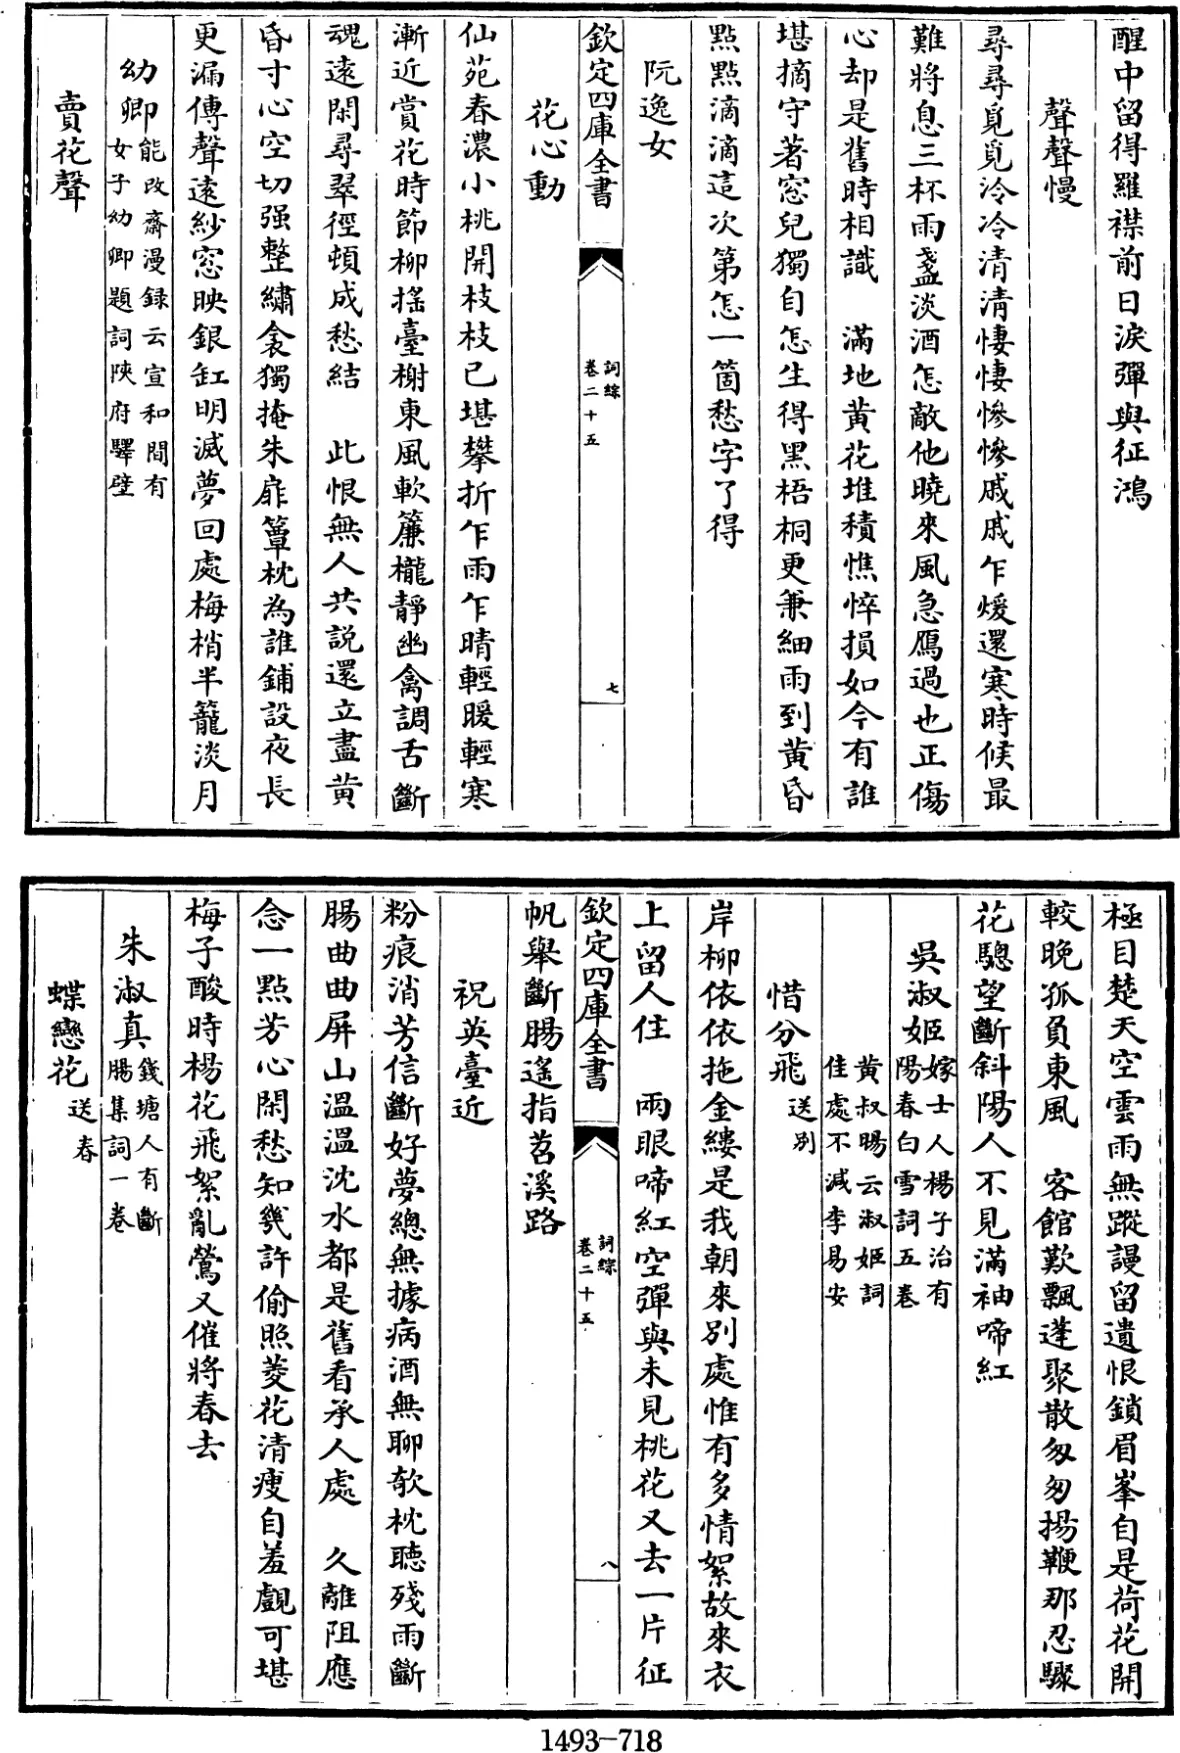 醒中留得羅襟前日淚彈與征鴻
聲聲慢
尋尋覓覓冷冷清清悽悽慘慘戚戚乍煖還寒時候最
難將息三杯兩盞淡酒怎敵他曉來風急鴈過也正傷
心却是舊時相識　滿地黃花堆積憔悴損如今有誰
堪摘守著窓兒獨自怎生得黑梧桐更兼細雨到黃昏
點點滴滴這次第怎一箇愁字了得
阮逸女
欽定四庫全書
詞綜
卷二十五
七
花心動
仙苑春濃小桃開枝枝已堪攀折乍雨乍晴輕暖輕寒
漸近賞花時節柳搖臺榭東風軟簾櫳靜幽禽調舌斷
魂遠閒尋翠徑頓成愁結　此恨無人共說還立盡黃
昏寸心空切强整繡衾獨掩朱扉簟枕為誰鋪設夜長
更漏傳聲遠紗窓映銀缸明滅夢回處梅梢半籠淡月
幼卿
能改齋漫録云宣和間有
女子幼卿題詞陝府驛壁
賣花聲
極目楚天空雲雨無蹤謾留遺恨鎖眉峯自是荷花開
較晚孤負東風　客館歎飄蓬聚散匆匆揚鞭那忍驟
花驄望斷斜陽人不見滿袖啼紅
吳淑姬
嫁士人楊子治有
陽春白雪詞五卷
黃叔暘云淑姬詞
佳處不減李易安
惜分飛
送別
岸柳依依拖金縷是我朝來別處惟有多情絮故來衣
上留人住　兩眼啼紅空彈與未見桃花又去一片征
欽定四庫全書
詞綜
卷二十五
八
帆舉斷腸遙指苕溪路
祝英臺近
粉痕消芳信斷好夢總無據病酒無聊欹枕聽殘雨斷
腸曲曲屏山溫溫沈水都是舊看承人處　久離阻應
念一點芳心閒愁知幾許偷照菱花清瘦自羞覷可堪
梅子酸時楊花飛絮亂鶯又催將春去
朱淑真
錢塘人有斷
腸集詞一卷
蝶戀花
送春
1493-718